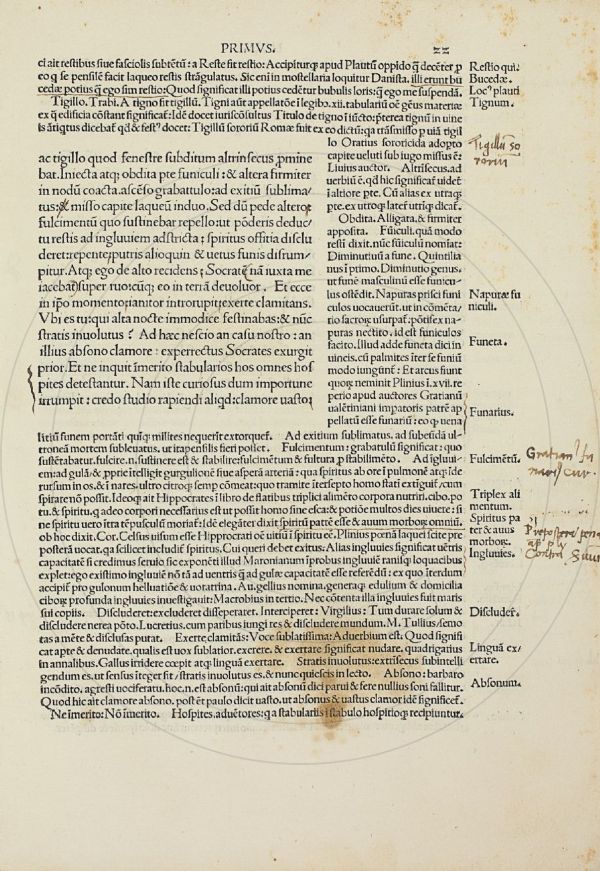 PRIMVS. 22
ci ait restibus siue fasciolis subtētū: a Reste fit restio: Accipiturq; apud Plautū oppido q̄ decēter p
eo q se pensilē facit laqueo restis strāgulatus. Sic eni in mostellaria loquitur Danista. illi erunt bu
cedæ potius q̄ ego sim restio: Quod significat illi potius cedētur bubulis loris: q̄ ego me suspendā.
Tigillo. Trabi. A tigno fit tigillū. Tigni aūt appellatōe i legibo .xii. tabularū oē gēus materiæ
ex q̄ edificia cōstant significat: Idē docet iuriscōsultus Titulo de tigno iūcto: pterea tignū in uine
is ātiqtus dicebat qd & fest9 docet: Tigillū sororiū Romæ fuit ex eo dictū: qa trāsmisso p uiā tigil
lo Oratius sororicida adopto
capite ueluti sub iugo missus ē:
Liuius auctor. Altrīsecus. ad
uerbiū ē. qd hic significat uidet
ī altiore pte. Cū alias ex utraq;
pte. ex utroq; later utrīq; dicat.
Obdita. Alligata, & firmiter
apposita. Fūiculi. quā modo
restī dixit. nūc fūiculū nomīat:
Diminutiuū a fune. Quintilia
nus ī primo. Diminutio genus.
ut fune masculinū esse funicu-
lus ostēdit. Napuras prisci funi
culos uocauerūt. ut in cōmēta/
rio sacroꝝ usurpat. pōtifex na-
puras nectito. id est funiculos
facito. Illud adde funeta dici in
uineis. cū palmites īter se funiū
modo iungunt: Et arcus fiunt
quoq; neminit Plinius ī.xvii. re
perio apud auctores Gratianū
ualētiniani īmpatoris patrē ap
pellatū esse funariū: eo q uena
ac tigillo quod fenestre subditum altrinsecus promine
bat. Iniecta atq; obdita pte funiculi: & altera firmiter
in nodū coacta. ascēso grabattulo: ad exitiū sublima/
tus: & misso capite laqueū induo. Sed dū pede altero
fulcimentū quo sustinebar repello: ut pōderis deduc/
tu restis ad ingluuiem adstricta: spiritus offitia disclu
deret: repente; putris alioquin & uetus funis disrum/
pitur. Atq; ego de alto recidens: Socratē nā iuxta me
iacebat super ruo: cūq; eo in terrā deuoluor. Et ecce
in ipo momento ianitor introrupit; exerte clamitans.
Vbi es tu: qui alta nocte immodice festinabas: & nūc
stratis inuolutus? Ad hæc nescio an casu nostro: an
illius absono clamore: experrectus Socrates exurgit
prior. Et ne inquit īmerito stabularios hos omnes hos
pites detestantur. Nam iste curiosus dum importune
irrumpit: credo studio rapiendi aliqd: clamore uasto;
litiū funem portāti quīq; milites nequerīt extorquef. Ad exitium sublimatus. ad subeūdā ul-
troneā mortem subleuatus. ut itapensilis fieri posset. Fulcimentum: grabatulū significat: quo
sustētabatur. fulcire.n. sustinere est & stabilire: fulcimētū & fultura p stabilimēto. Ad igluui-
em: ad gulā & pprie itelligit gurgulionē siue asperā arteriā: qua spiritus ab ore ī pulmonē atq; ide
rursum in os. & ī nares. ultro citroq; semp cōmeat: quo tramite itersepto homo stati extiguit/ cum
spirare nō possit. Ideoq; ait Hippocrates ī libro de flatibus triplici alimēto corpora nutriri. cibo. po
tu. & spiritu. q adeo corpori necessarius est ut possit homo sine esca: & potiōe multos dies uiuere: si
ne spiritu uero ītra tēpusculū moriat: Idē elegāter dixit spiritū pattē esse & auum morboꝝ omniū.
ob hoc dixit. Cor. Celsus uisum esse Hippocrati oē uitiū ī spiritu eē. Plinius pornā laquei scite pre
posterā uocat. qa scilicet includit spiritus. Cui queri debet exitus. Alias ingluuies significat uētris
capacitatē si credimus seruio sic exponēti illud Maronianum īprobus ingluuiē ranisq; loquacibus
explet: ego existimo ingluuiē nō tā ad uentris q̄ ad gulæ capacitatē esse referēdū: ex quo īterdum
accipit pro gulonum helluatiōe & uoratrina. Au. gellius nomina. generaq; edulium & domicilia
ciboꝝ profunda ingluuies inuestigauit: Macrobius in tertio. Nec cōtenta illa ingluuies fuit maris
sui copiis. Discluderet: excluderet disseperaret. Interciperet: Virgilius: Tum durare solum &
discludere nerea pōto. Lucretius. cum paribus iungi res & discludere mundum. M. Tullius/ semo
tas a mēte & disclusas putat. Exerte, clamitās: Voce sublatissima: Aduerbium est: Quod signifi
cat apte & denudate, qualis est uox sublatior. exerere, & exertare significat nudare. quadrigatius
in annalibus. Gallus irridere cœpit atq; linguā exertare. Stratis inuolutus: extrīsecus subintelli
gendum es. ut sensus īteger fit/ stratis inuolutus es. & nunc quiescis in lecto. Absono: barbaro
incōdito. agresti uociferatu. hoc.n. est absonū: qui ait absonū dici parui & fere nullius soni fallitur.
Quod hic ait clamore absono. post et paulo dicit uasto. ut absonus & uastus clamor idē significet.
Ne īmerito: Nō īmerito. Hospites. aduētores: q a stabulariis ī stabulo hospitioq; recipiuntur.
Restio qui:
Bucedæ.
Loc9 plauti
Tignum.
Tigillū so
roriū
Napuræ fu
niculi.
Funeta.
Funarius.
Fulcimētū.
Gratian9 fu
nari9 cur.
Triplex ali
mentum.
Spiritus pa
ter & auus
morboꝝ.
Ingluuies.
Discludere.
Linguā ex/
ertare.
Absonum.